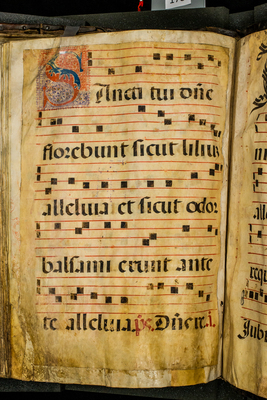 Sancti tui dñe
florebunt sicut lilium
alleluia et sicut odor
balsami erunt ante
te alleluia. ps. Dñe re.i.